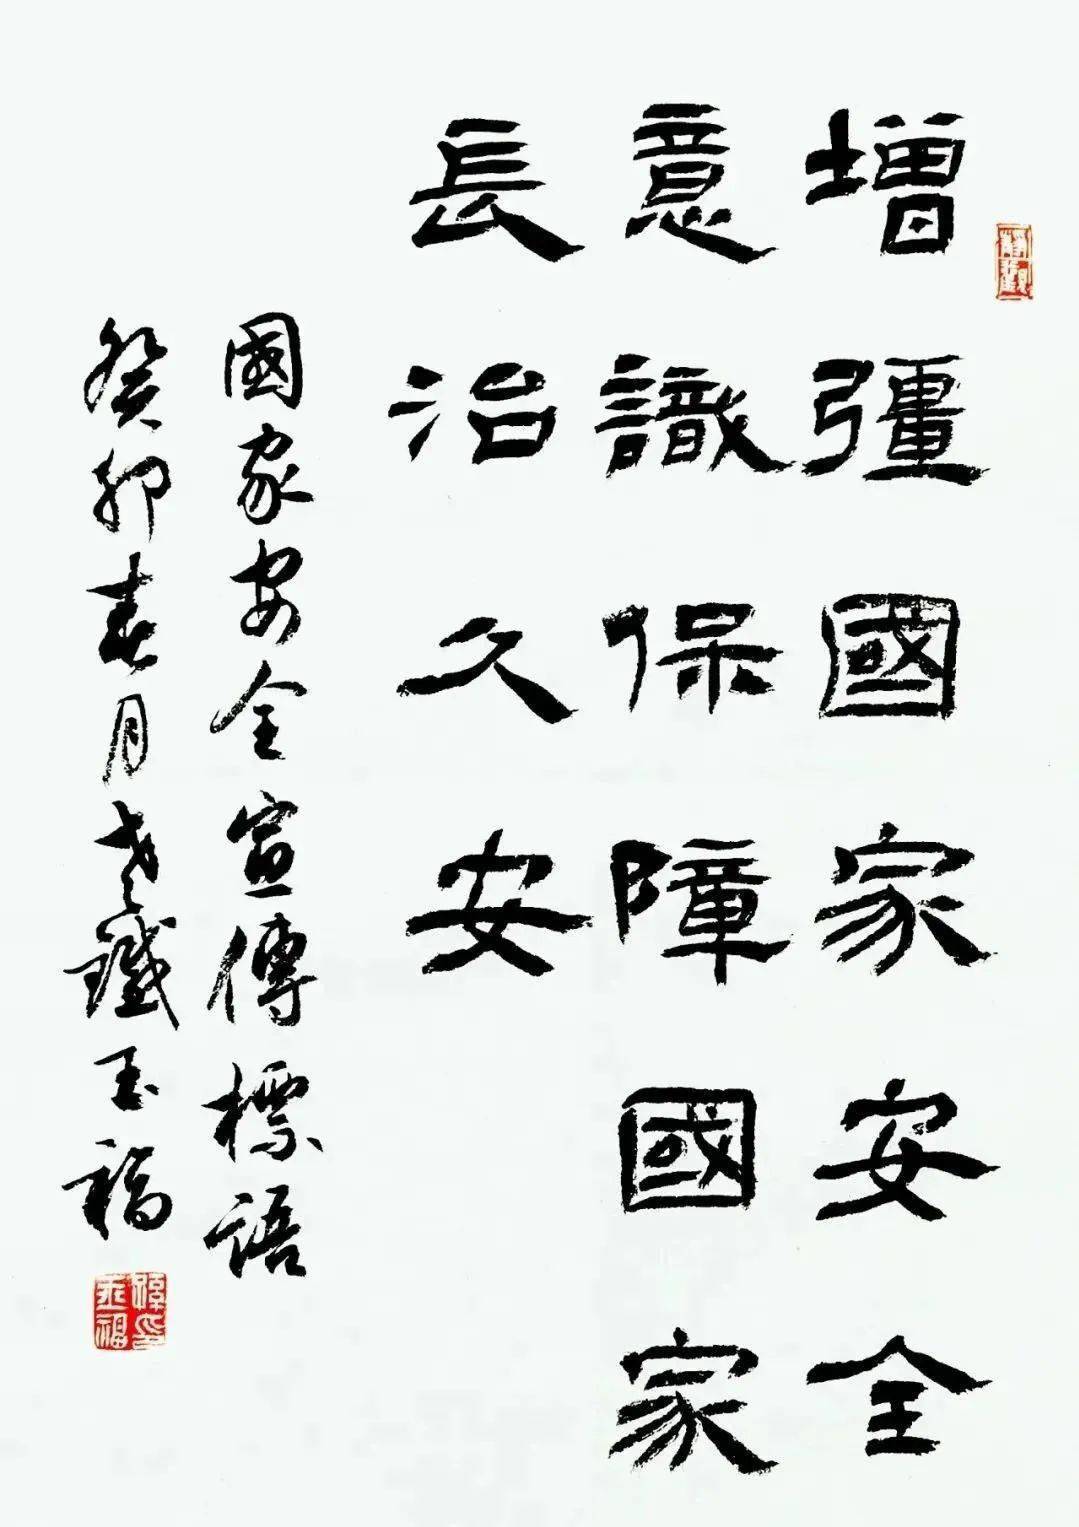 增彊國家安全
意識保障國家
長治久安
國家安全宣傳標語
癸卯春月老鐵玉福
靜觀
印玉福